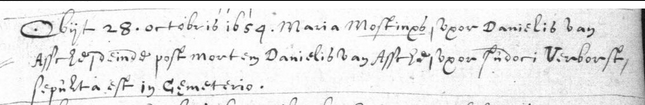 Obijt 28. octobris 1654. Maria Mostinxs, vxor Danielis van
Assche, deinde post mortem Danielis van Assche, vxor Judoci Verborst,
sepulta est in Cemeterio.